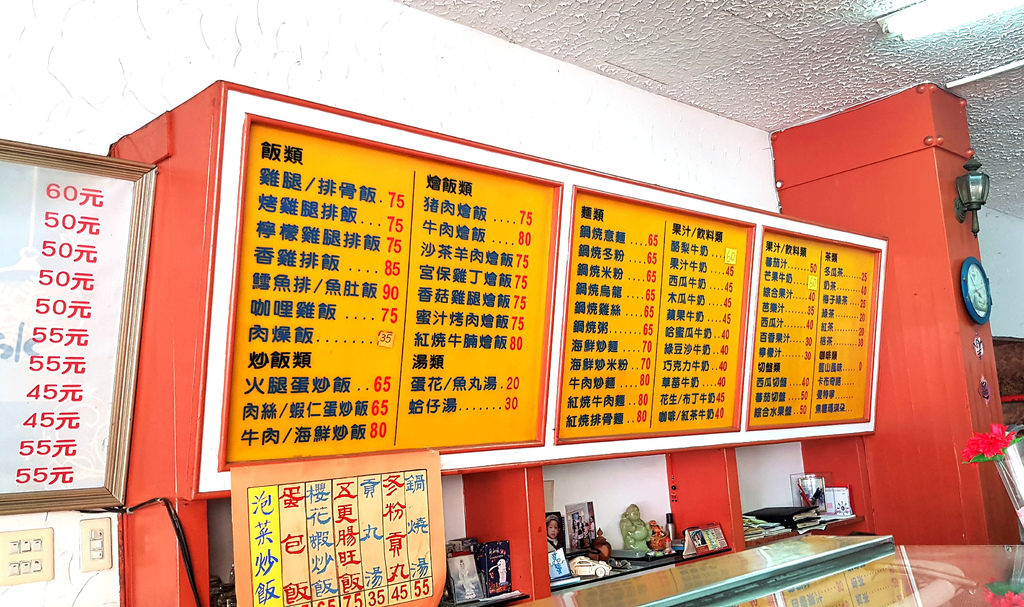 60元
50元
50元
50元
50元
55元
55元
45元
45元
55元
55元
飯類
雞腿/排骨飯..75
烤雞腿排飯...75
檸檬雞腿排飯75
香雞排飯....85
鱈魚排/魚肚飯90
咖哩雞飯....75
肉燥飯.......35
炒飯類
火腿蛋炒飯..65
肉絲/蝦仁蛋炒飯65
牛肉/海鮮炒飯80
燴飯類
豬肉燴飯....75
牛肉燴飯....80
沙茶羊肉燴飯75
宮保雞丁燴飯75
香菇雞腿燴飯75
蜜汁烤肉燴飯75
紅燒牛腩燴飯80
湯類
蛋花/魚丸湯.20
蛤仔湯.......30
麵類
鍋燒意麵...65
鍋燒冬粉...65
鍋燒米粉...65
鍋燒烏龍...65
鍋燒雞絲...65
鍋燒粥.....65
海鮮炒麵...70
海鮮炒米粉..70
牛肉炒麵...80
紅燒牛肉麵..80
紅燒排骨麵..80
果汁/飲料類
酪梨牛奶...
果汁牛奶...45
西瓜牛奶...45
木瓜牛奶...45
蘋果牛奶...45
哈蜜瓜牛奶..40
綠豆沙牛奶..40
巧克力牛奶..40
草莓牛奶...40
花生/布丁牛奶45
咖啡/紅茶牛奶40
果汁/飲料類
蕃茄汁.....50
芒果牛奶...
綜合果汁...40
芭樂汁.....35
西瓜汁.....40
百香果汁...30
檸檬汁.....30
切盤類
西瓜切盤...40
蕃茄切盤...50
綜合水果盤..50
茶類
冬瓜茶....25
奶茶.....40
梅子綠茶...25
綠茶.....20
紅茶.....20
桔茶.....30
咖啡類
藍山風味...0
卡布奇諾...
曼特寧.....
焦糖瑪琪朵..
泡菜炒飯
蛋包飯
櫻花蝦炒飯65
五更腸旺飯75
貢丸湯35
冬粉貢丸45
鍋燒湯55